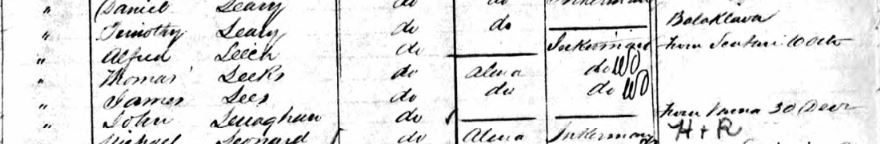 " Daniel Leary do do Inkerman
" Timothy Leary do do Balaklava
" Alfred Leech do Inkerman from Scutari 10 Octr
" Thomas Leeks do Alma do WD
" James Lees do do do WD
" John Lenaghan do from Varna 30 Decr
" Michael Leonard do Alma Inkerman H + R